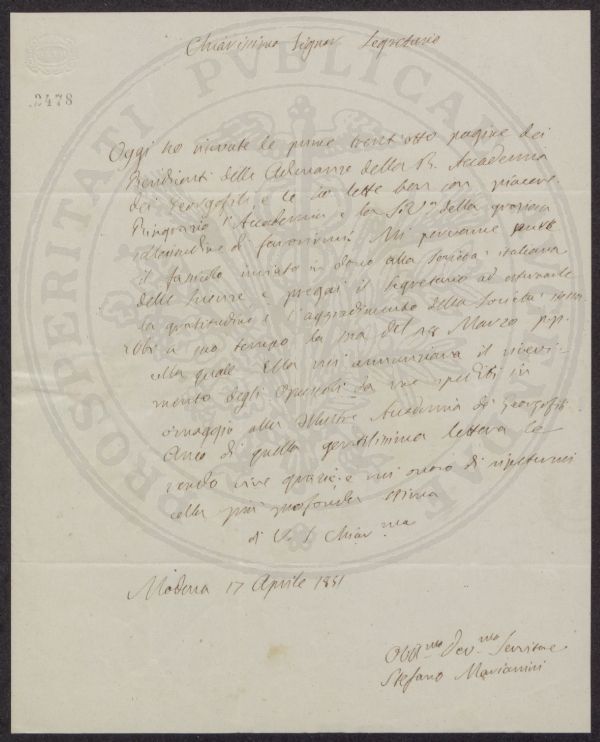 Chiarissimo Signor Segretario
.2478
Oggi ho ricevute le prime trent'otto pagine dei
Rendiconti delle Adunanze della R. Accademia
dei Georgofili e le ho lette ben con piacere.
Ringrazio l'Accademia e la S.V. della graziosa
sollecitudine di favorirmi. Mi pervenne pure
il fascicolo inviato in dono alla Società italiana
delle Scienze e pregai il Segretario ad esternarle
la gratitudine e l'aggradimento della Società
Ebbi a suo tempo la sua del 28 Marzo p.p.
colla quale Ella mi annunziava il ricevi-
mento degli Opuscoli da me spediti in
omaggio alla Illustre Accademia dei Georgofili.
Anco di quella gentilissima lettera le
rendo vive grazie e mi onoro di ripetermi
colla più profonda stima
di V. S. Chiar.ma
Modena 17 Aprile 1851
Obb.mo Dev.mo Servitore
Stefano Marianini
PROSPERITATI PVBLICAE